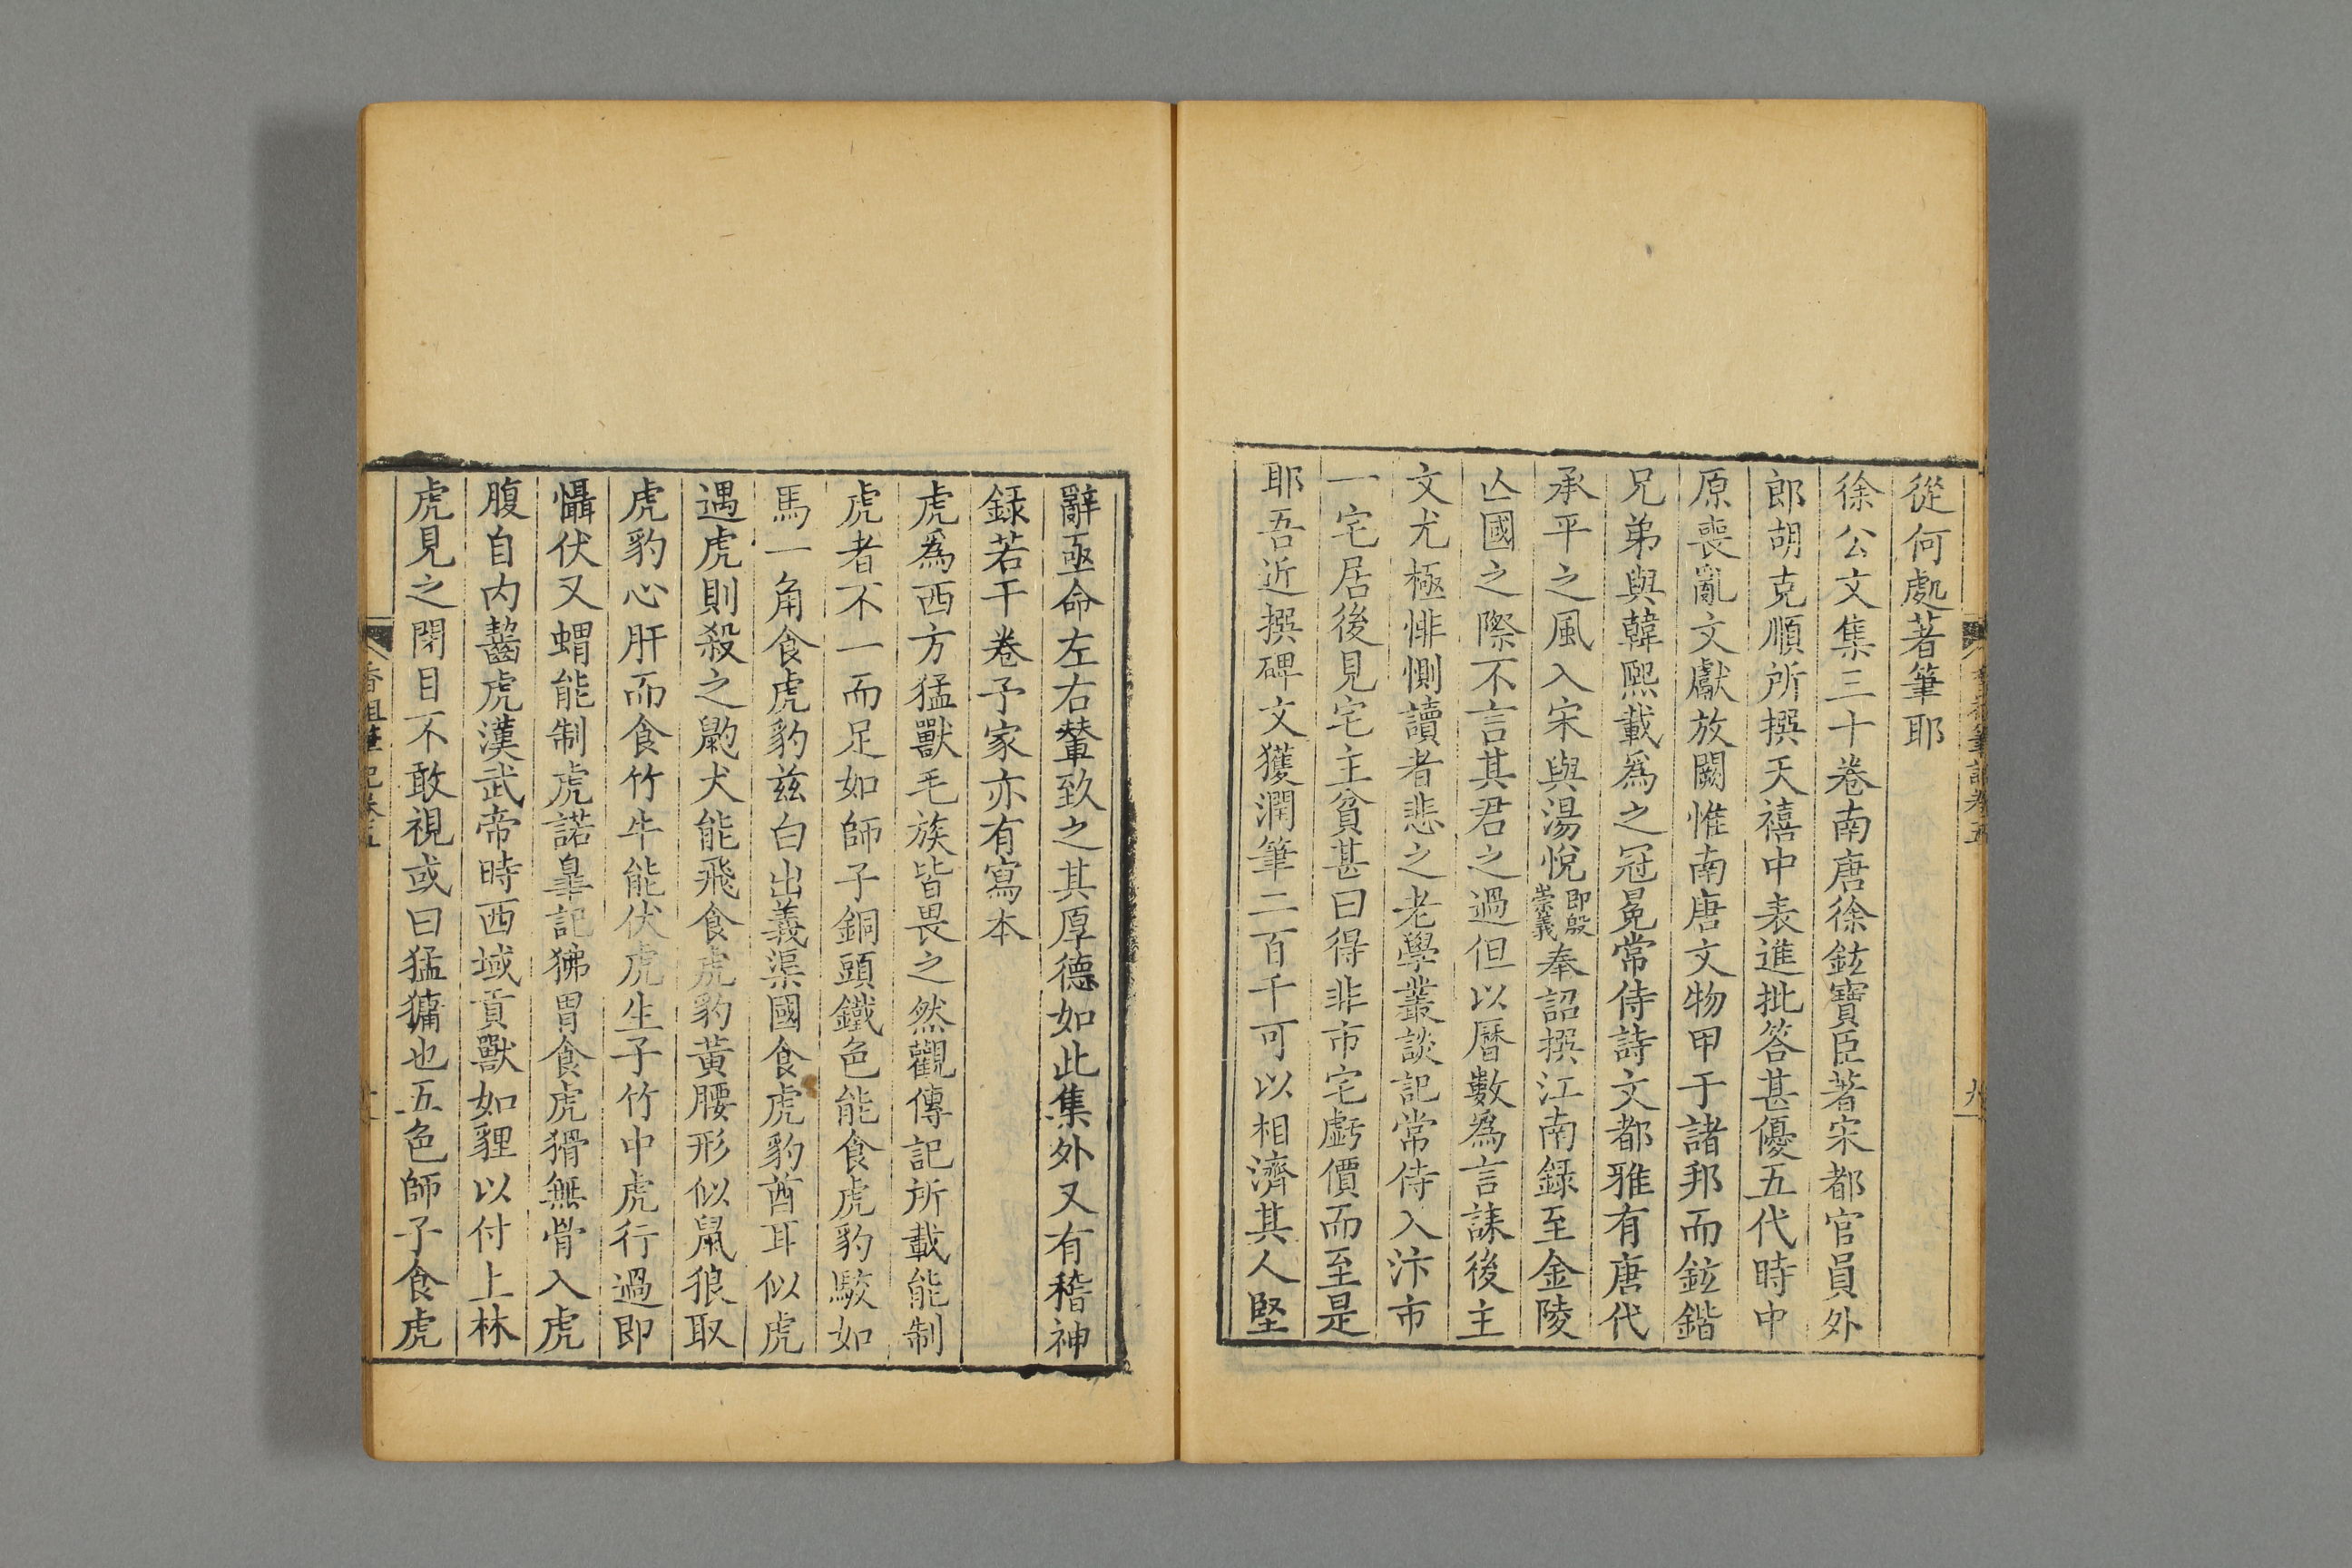 從何處著筆耶
徐公文集三十卷南唐徐鉉寶臣著宋都官員外
郎胡克順所撰天禧中表進批答甚優五代時中
原喪亂文獻放闕惟南唐文物甲于諸邦而鉉鍇
兄弟與韓熙載爲之冠冕常侍詩文都雅有唐代
承平之風入宋與湯悅即殷崇義奉詔撰江南錄至金陵
亾國之際不言其君之過但以曆數爲言誄後主
文尤極悱惻讀者悲之老學叢談記常侍入汴市
一宅居後見宅主貧甚曰得非市宅虧價而至是
耶吾近撰碑文獲潤筆二百千可以相濟其人堅
辭亟命左右輦致之其厚德如此集外又有稽神
録若干卷予家亦有寫本
虎爲西方猛獸毛族皆畏之然觀傳記所載能制
虎者不一而足如師子銅頭鐵色能食虎豹駮如
馬一角食虎豹茲白出義渠國食虎豹酋耳似虎
遇虎則殺之鼩犬能飛食虎豹黃腰形似鼠狼取
虎豹心肝而食竹牛能伏虎生子竹中虎行過即
懾伏又蝟能制虎諾皐記狒胃食虎猾無骨入虎
腹自内齧虎漢武帝時西域貢獸如貍以付上林
虎見之閉目不敢視或曰猛㺎也五色師子食虎
香祖筆記卷五